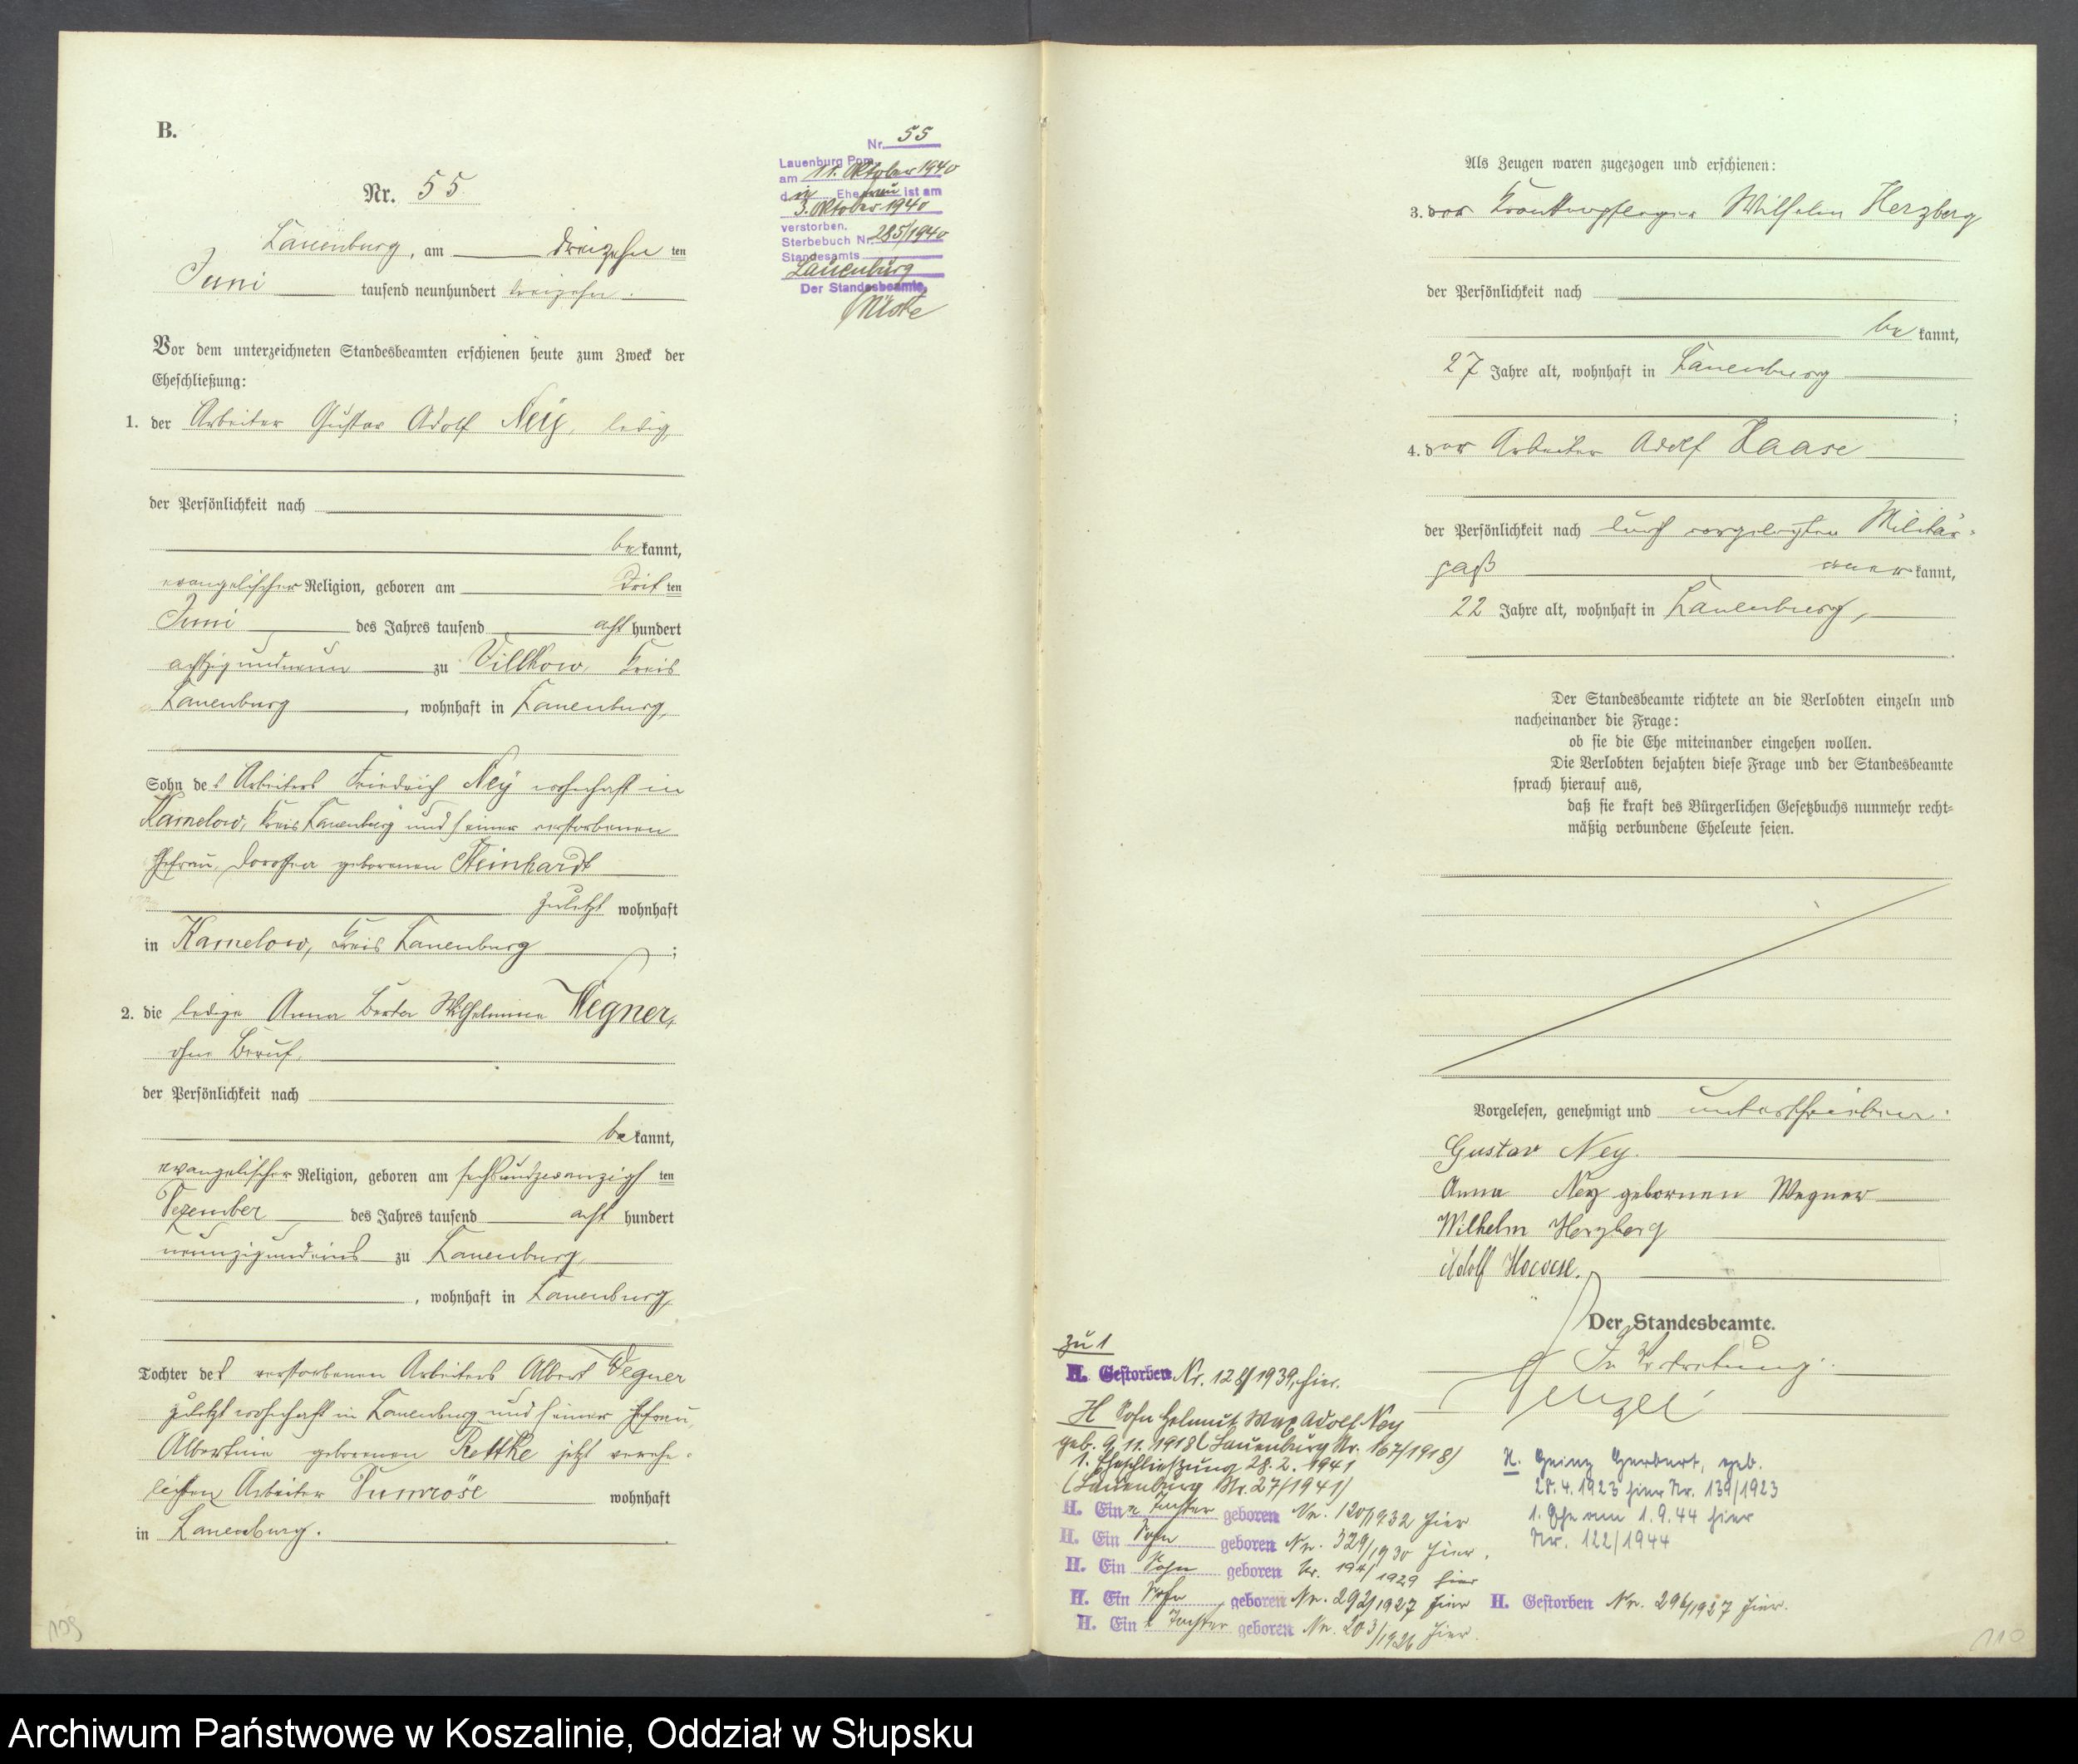 B.
Nr. 55
Lauenburg, am dreizehn ten
Juni tausend neunhundert dreizehn.
Vor dem unterzeichneten Standesbeamten erschienen heute zum Zweck der
Eheschließung:
1. der Arbeiter Gustav Adolf Ney, ledig,
der Persönlichkeit nach
be kannt,
evangelischer Religion, geboren am drit ten
Juni des Jahres tausend acht hundert
achtzigundneun zu Villkow, Kreis
Lauenburg, wohnhaft in Lauenburg,
Sohn des Arbeiters Friedrich Ney wohnhaft in
Kamelow, Kreis Lauenburg und seiner verstorbenen
Ehefrau, Dorothea geborenen Steinhardt
zuletzt wohnhaft
in Kamelow, Kreis Lauenburg;
2. die ledige Anna Berta Wilhelmine Wegner,
ohne Beruf,
der Persönlichkeit nach
be kannt,
evangelischer Religion, geboren am sechsundzwanzigst ten
Dezember des Jahres tausend acht hundert
neunzigundeins zu Lauenburg,
, wohnhaft in Lauenburg,
Tochter des verstorbenen Arbeiters Albert Wegner
zuletzt wohnhaft in Lauenburg und seiner Ehefrau,
Albertine geborenen Rettke jetzt verehe-
lichten Arbeiter Pumröse wohnhaft
in Lauenburg.
109
Nr. 55
Lauenburg Pom.
am 11. Oktober 1940
die Ehefrau ist am
3. Oktober 1940
verstorben.
Sterbebuch Nr. 285/1940
Standesamts
Lauenburg
Der Standesbeamte,
Als Zeugen waren zugezogen und erschienen:
3. der Krankenpfleger Wilhelm Herzberg
der Persönlichkeit nach
be kannt,
27 Jahre alt, wohnhaft in Lauenburg
;
4. der Arbeiter Adolf Haase
der Persönlichkeit nach durch vorgelegten Militär-
paß aner kannt,
22 Jahre alt, wohnhaft in Lauenburg,
Der Standesbeamte richtete an die Verlobten einzeln und
nacheinander die Frage:
ob sie die Ehe miteinander eingehen wollen.
Die Verlobten bejahten diese Frage und der Standesbeamte
sprach hierauf aus,
daß sie kraft des Bürgerlichen Gesetzbuchs nunmehr recht-
mäßig verbundene Eheleute seien.
Vorgelesen, genehmigt und unterschrieben.
Gustav Ney.
Anna Ney gebornen Wegner
Wilhelm Herzberg
Adolf Haase.
Der Standesbeamte.
In Vertretung.
zu 1
H. Gestorben Nr. 128/1939, hier.
H Sohn Helmut Max Adolf Ney
geb. 9.11.1918 (Lauenburg Nr. 167/1918)
1. Eheschließung 28.2.1941
(Lauenburg Nr. 27/1941)
H. Eine Tochter geboren Nr. 120/1932 hier
H. Ein Sohn geboren Nr. 329/1930 hier.
H. Ein Sohn geboren Nr. 194/1929 hier
H. Ein Sohn geboren Nr. 292/1927 hier
H. Eine Tochter geboren Nr. 203/1926 hier.
H. Heinz Herbert, geb.
28.4.1923 hier Nr. 139/1923
1. Ehe am 1.9.44 hier
Nr. 122/1944
H. Gestorben Nr. 296/1927 hier.
110
Archiwum Państwowe w Koszalinie, Oddział w Słupsku